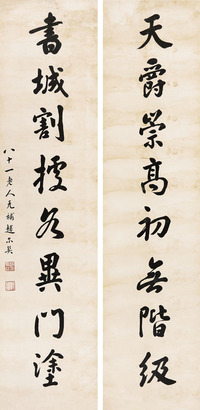 天爵崇高初無階級
書城割據各異門塗
八十一老人堯補趙不癸